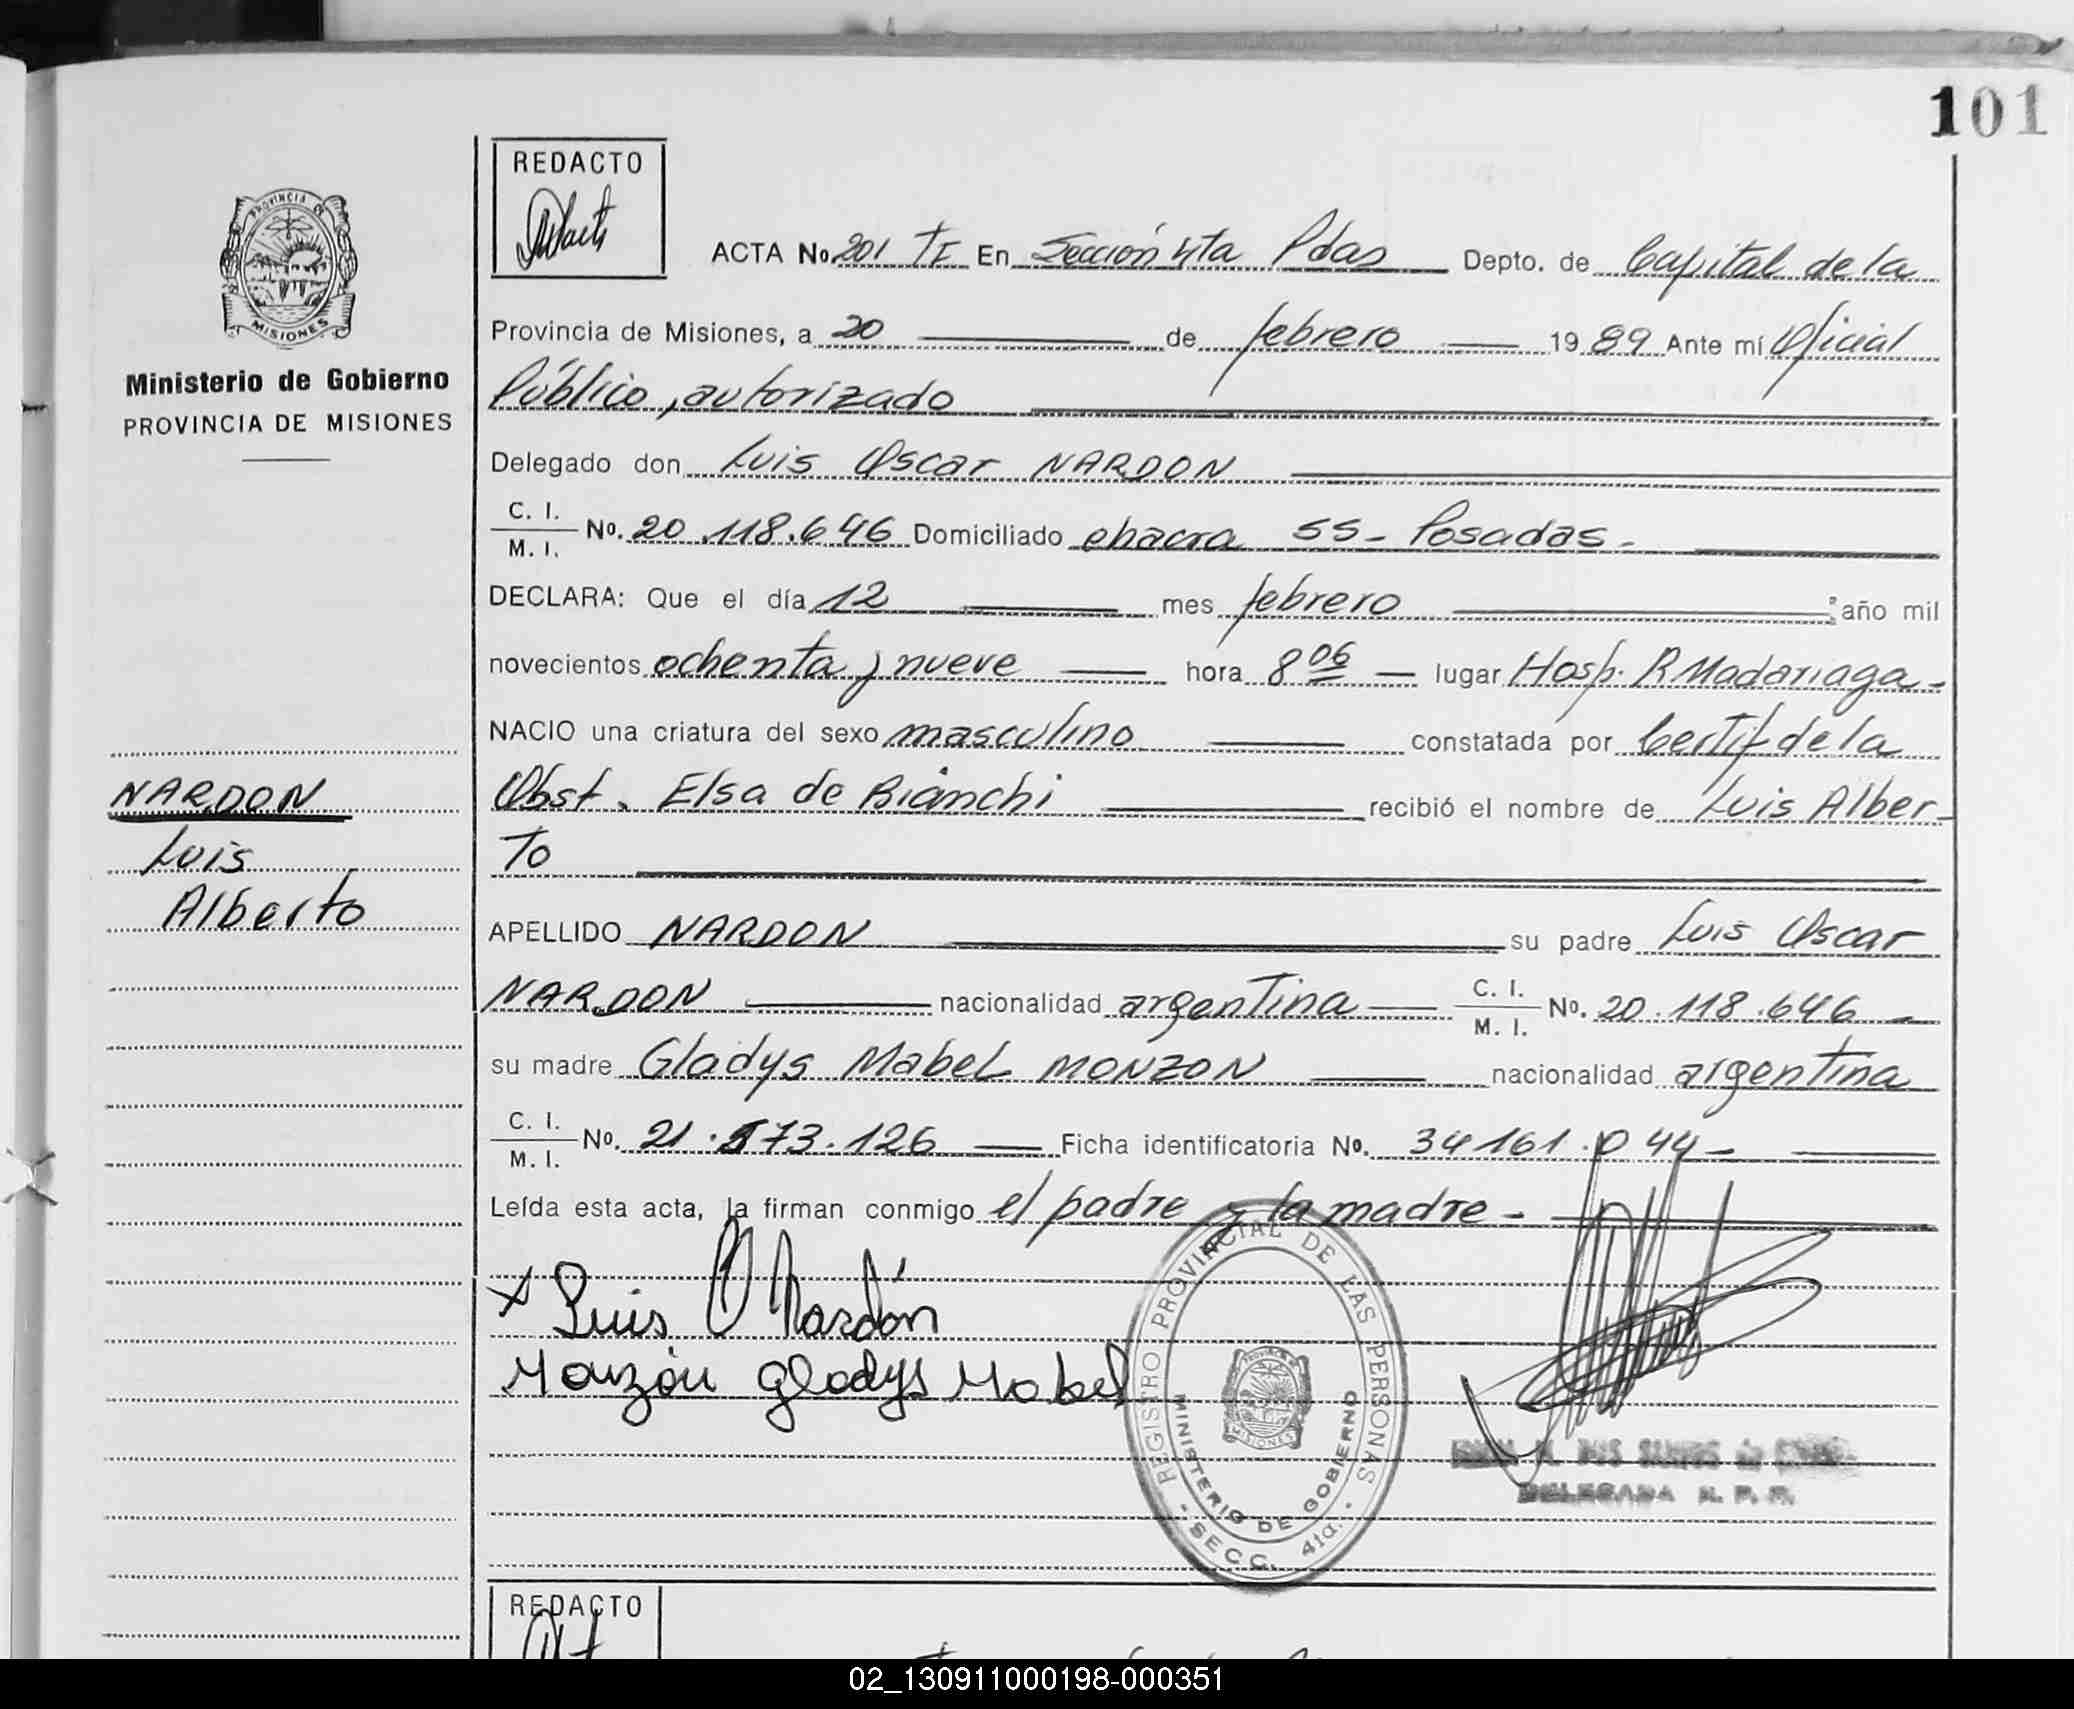 101
REDACTO
ACTA No. 201 TI En Sección 4ta Pdas Depto. de Capital de la
Provincia de Misiones, a 20 de febrero 1989 Ante mí Oficial
Público, autorizado
Delegado don Luis Oscar NARDON
C. I.
M. I. No. 20.118.646 Domiciliado chacra 55 - Posadas.-
DECLARA: Que el día 12 mes febrero año mil
novecientos ochenta y nueve hora 8 06 lugar Hosp. R Madariaga -
NACIO una criatura del sexo masculino constatada por Certif de la
Obst. Elsa de Bianchi recibió el nombre de Luis Alber-
to
APELLIDO NARDON su padre Luis Oscar
NARDON nacionalidad argentina C. I. M. I. No. 20.118.646 -
su madre Gladys Mabel MONZON nacionalidad argentina
C. I.
M. I. No. 21.573.126 Ficha identificatoria No. 34161.044 -
Leída esta acta, la firman conmigo el padre y la madre -
x Luis O Nardón
Monzón Gladys Mabel
REGISTRO PROVINCIAL DE LAS PERSONAS
MINISTERIO DE GOBIERNO
PROVINCIA
MISIONES
- SECC. 4ta. -
DELEGADA R. P. P.
PROVINCIA DE
MISIONES
Ministerio de Gobierno
PROVINCIA DE MISIONES
NARDON
Luis
Alberto
REDACTO
02_130911000198-000351